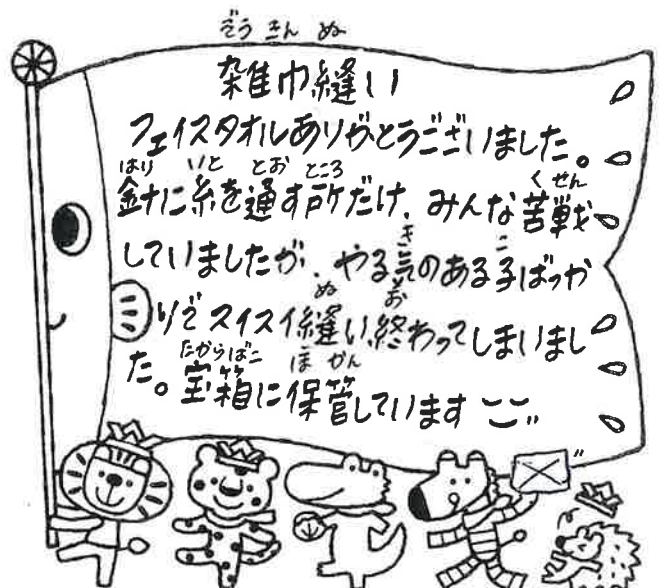 ぞう きん ぬ
雑巾縫い
フェイスタオルありがとうございました。
はり いと とお ところ くせん
針に糸を通す所だけ、みんな苦戦
き こ
していましたが、やる気のある子ばっか
ぬ お
りでスイスイ縫い終わってしまいまし
たからばこ ほかん
た。宝箱に保管しています